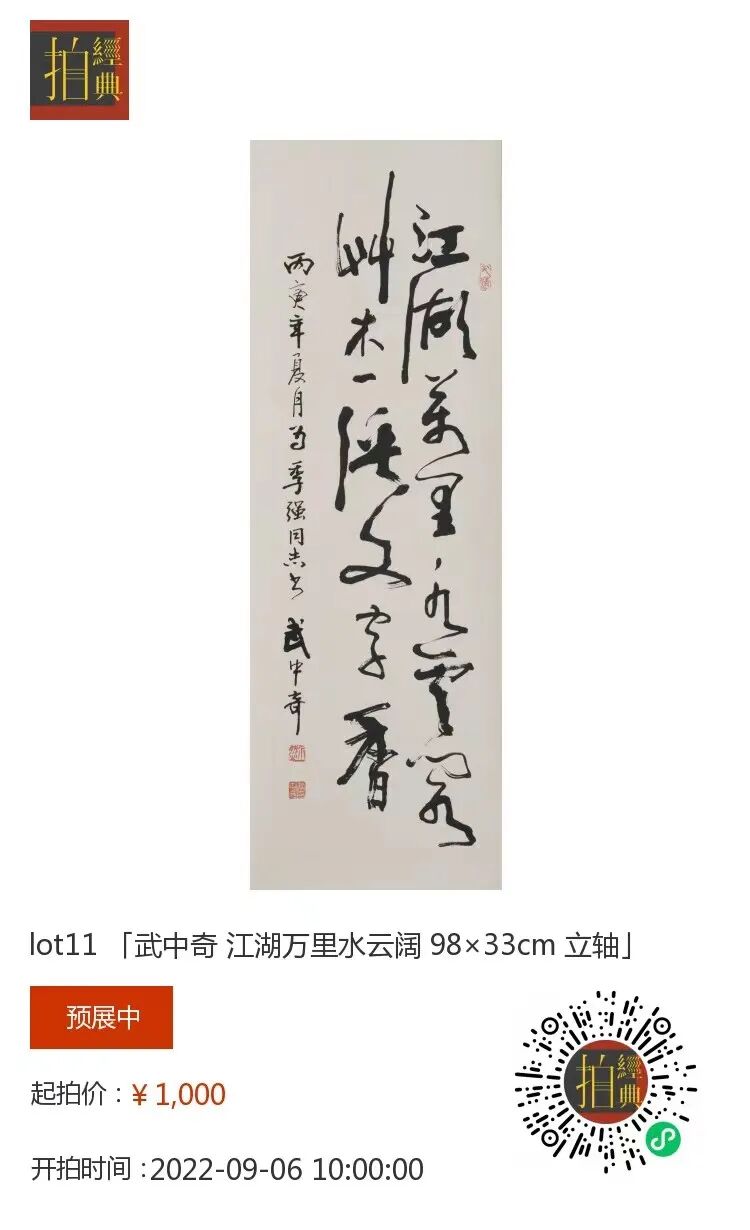 拍經典
江湖萬里水雲闊
艸木一溪文字香
丙寅年夏月为季强同志书 武中奇
lot11 「武中奇 江湖万里水云阔 98×33cm 立轴」
预展中
起拍价：¥ 1,000
开拍时间：2022-09-06 10:00:00
拍經典